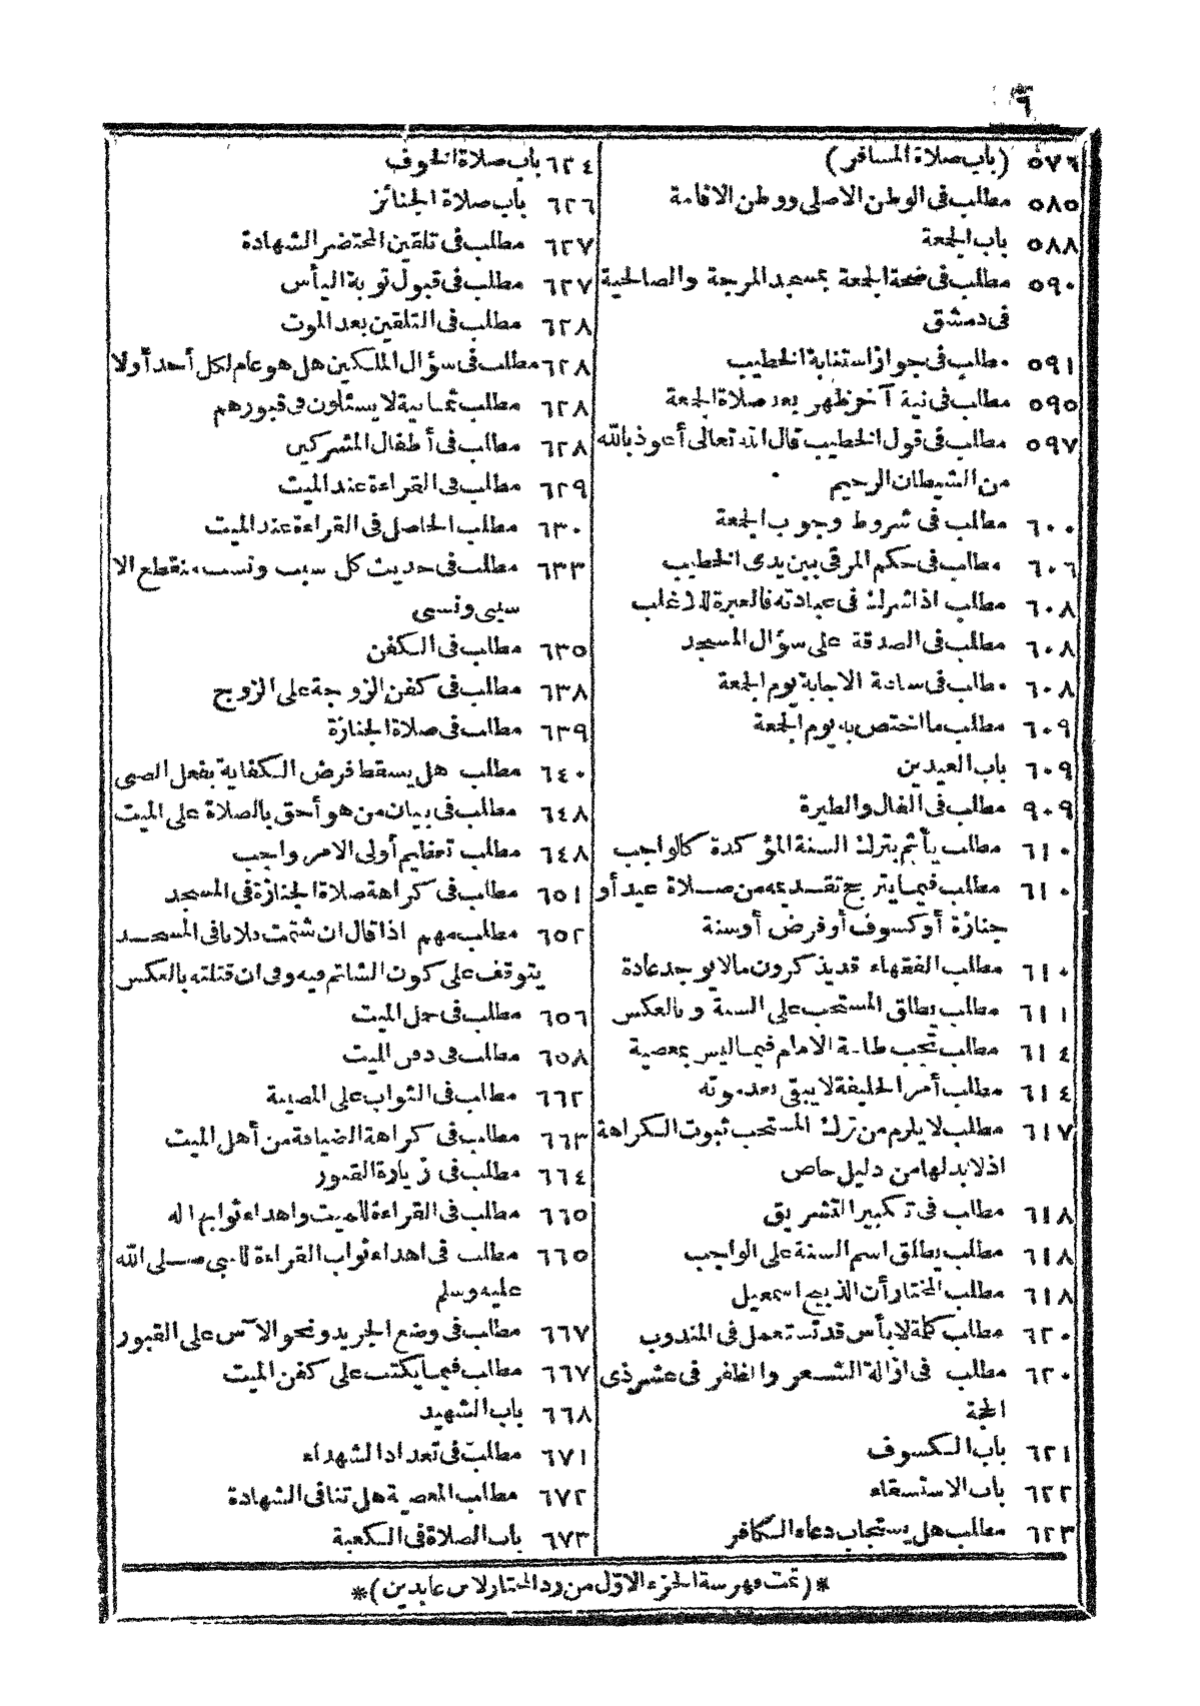 ٦
٥٧٦ (باب صلاة المسافر)
٥٨٥ مطلب فى الوطن الاصلى ووطن الاقامة
٥٨٨ باب الجمعة
٥٩٠ مطلب فى صحة الجمعة بمسجد المرجة والصالحية
فى دمشق
٥٩١ مطلب فى جواز استنابة الخطيب
٥٩٥ مطلب فى نية آخر ظهر بعد صلاة الجمعة
٥٩٧ مطلب فى قول الخطيب قال الله تعالى أعوذ بالله
من الشيطان الرحيم
٦٠٠ مطلب فى شروط وجوب الجمعة
٦٠٦ مطلب فى حكم المرقى بين يدى الخطيب
٦٠٨ مطلب اذا شرك فى عبادته فالعبرة للاغلب
٦٠٨ مطلب فى الصدقة على سؤال المسجد
٦٠٨ مطلب فى ساعة الاجابة يوم الجمعة
٦٠٩ مطلب ما اختص به يوم الجمعة
٦٠٩ باب العيدين
٩٠٩ مطلب فى الفال والطيرة
٦١٠ مطلب يأثم بترك السنة المؤكدة كالواجب
٦١٠ مطلب فيما يترجح تقديمه من صلاة عيد أو
جنازة أو كسوف أو فرض أو سنة
٦١٠ مطلب الفقهاء قد يذكرون مالا يوجد عادة
٦١١ مطلب يطلق المستحب على السنة وبالعكس
٦١٤ مطلب تجب طاعة الامام فيما ليس بمعصية
٦١٤ مطلب أمر الخليفة لا يبقى بعد موته
٦١٧ مطلب لا يلزم من ترك المستحب ثبوت الكراهة
اذ لا بد لها من دليل خاص
٦١٨ مطلب فى تكبير التشريق
٦١٨ مطلب يطلق اسم السنة على الواجب
٦١٨ مطلب المختار أن الذبيح اسمعيل
٦٢٠ مطلب كلمة لا بأس قد تستعمل فى المندوب
٦٢٠ مطلب فى ازالة الشعر والظفر فى عشر ذى
الحجة
٦٢١ باب الكسوف
٦٢٢ باب الاستسقاء
٦٢٣ مطلب هل يستجاب دعاء الكافر
٦٢٤ باب صلاة الخوف
٦٢٦ باب صلاة الجنائز
٦٢٧ مطلب فى تلقين المحتضر الشهادة
٦٢٧ مطلب فى قبول توبة اليأس
٦٢٨ مطلب فى التلقين بعد الموت
٦٢٨ مطلب فى سؤال الملكين هل هو عام لكل أحد أولا
٦٢٨ مطلب ثمانية لا يسئلون فى قبورهم
٦٢٨ مطلب فى أطفال المشركين
٦٢٩ مطلب فى القراءة عند الميت
٦٣٠ مطلب الحاصل فى القراءة عند الميت
٦٣٣ مطلب فى حديث كل سبب ونسب منقطع الا
سببى ونسبى
٦٣٥ مطلب فى الكفن
٦٣٨ مطلب فى كفن الزوجة على الزوج
٦٣٩ مطلب فى صلاة الجنازة
٦٤٠ مطلب هل يسقط فرض الكفاية بفعل الصبى
٦٤٨ مطلب فى بيان من هو أحق بالصلاة على الميت
٦٤٨ مطلب تعظيم أولى الامر واجب
٦٥١ مطلب فى كراهة صلاة الجنازة فى المسجد
٦٥٢ مطلب مهم اذا قال ان شتمت فلانا فى المسجد
يتوقف على كون الشاتم فيه وفى ان قتلته بالعكس
٦٥٦ مطلب فى حمل الميت
٦٥٨ مطلب فى دفن الميت
٦٦٢ مطلب فى الثواب على المصيبة
٦٦٣ مطلب فى كراهة الضيافة من أهل الميت
٦٦٤ مطلب فى زيارة القبور
٦٦٥ مطلب فى القراءة للميت واهداء ثوابها له
٦٦٥ مطلب فى اهداء ثواب القراءة للنبى صلى الله
عليه وسلم
٦٦٧ مطلب فى وضع الجريد ونحو الآس على القبور
٦٦٧ مطلب فيما يكتب على كفن الميت
٦٦٨ باب الشهيد
٦٧١ مطلب فى تعداد الشهداء
٦٧٢ مطلب المعصية هل تنافى الشهادة
٦٧٣ باب الصلاة فى الكعبة
*(تمت فهرسة الجزء الاوّل من رد المحتار لابن عابدين)*